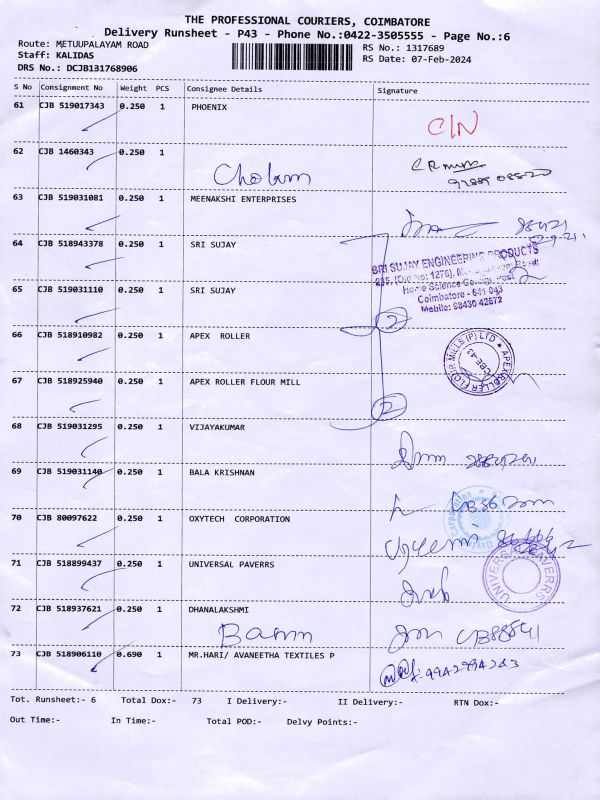 THE PROFESSIONAL COURIERS, COIMBATORE
Delivery Runsheet - P43 - Phone No.:0422-3505555 - Page No.:6
Route: METUUPALAYAM ROAD
RS No.: 1317689
Staff: KALIDAS
RS Date: 07-Feb-2024
DRS No.: DCJB131768906
S No Consignment No Weight PCS Consignee Details Signature
61 CJB 519017343 0.250 1 PHOENIX
C/N
62 CJB 1460343 0.250 1
63 CJB 519031081 0.250 1 MEENAKSHI ENTERPRISES
64 CJB 518943378 0.250 1 SRI SUJAY
SRI SUJAY ENGINEERING PRODUCTS
Home Science College Post
65 CJB 519031110 0.250 1 SRI SUJAY
Coimbatore - 641 043
Mobile: 98430 42672
2
66 CJB 518910982 0.250 1 APEX ROLLER
APEX ROLLER FLOUR MILLS (P) LTD
CBE-43
67 CJB 518925940 0.250 1 APEX ROLLER FLOUR MILL
2
68 CJB 519031295 0.250 1 VIJAYAKUMAR
69 CJB 519031140 0.250 1 BALA KRISHNAN
70 CJB 80097622 0.250 1 OXYTECH CORPORATION
71 CJB 518899437 0.250 1 UNIVERSAL PAVERRS
UNIVERSAL PAVERRS
72 CJB 518937621 0.250 1 DHANALAKSHMI
73 CJB 518906110 0.690 1 MR.HARI/ AVANEETHA TEXTILES P
Tot. Runsheet:- 6 Total Dox:- 73 I Delivery:- II Delivery:- RTN Dox:-
Out Time:- In Time:- Total POD:- Delvy Points:-